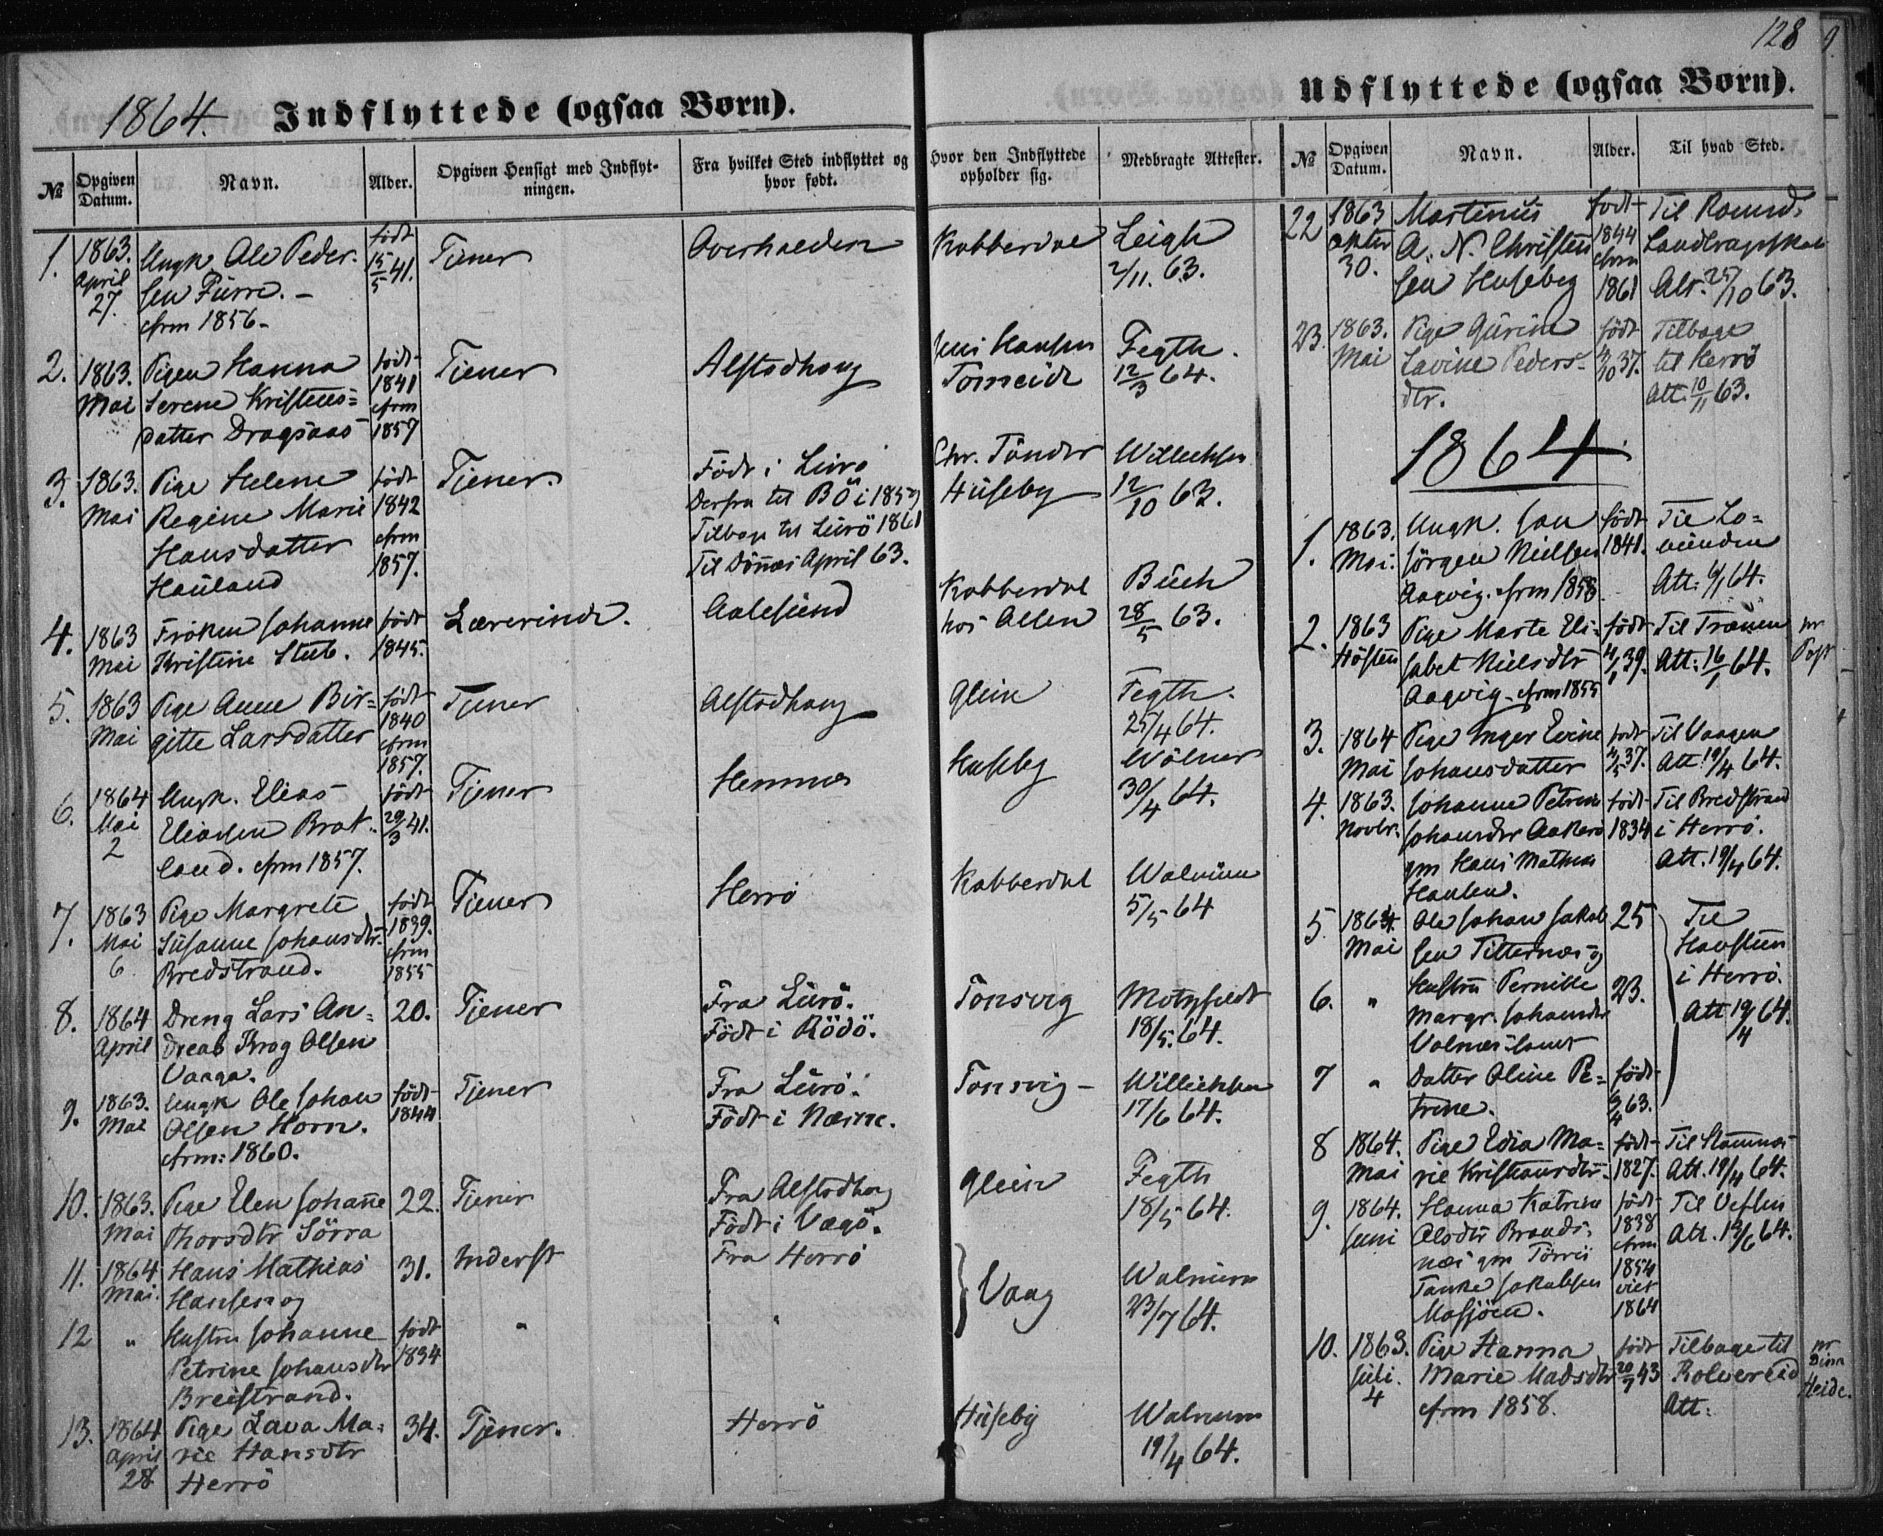 128
1864. Indflyttede (ogsaa Børn).
№
Opgiven Datum.
Navn.
Alder.
Opgiven Hensigt med Indflyt-
ningen.
Fra hvilket Sted indflyttet og
hvor født.
Hvor den Indflyttede
opholder sig.
Medbragte Attester.
1. 1863. Ungk Ole Peder- født Tjener Overhalden Kobberdal Leigh
April sen Furre. – 15/5 41. 2/11. 63.
27. cfrm 1856 –
2. 1863. Pigen Hanna født Tjener Alstadhoug Jens Hansen Fegth.
Mai Serene Kristens= 1841 Tomeide 12/3 64.
datter Dragsaas cfrm 1857
3. 1863. Pige Helene født Tjener. Födt i Lurö Chr. Tönder Willichsen
Mai Regine Marie 1842 Derfra til Bö i 1859 Huseby 12/10 63.
Hansdatter cfrm Tilbage til Lurö 1861
Hauland 1857. Til Dönnæs April 63.
4. 1863 Fröken Johanne født Lærerinde. Aalesund Kobberdal Buch
Mai Kristine Stub. 1845. hos Allen 28/5 63.
5. 1863 Pige Anne Bir= født Tjener Alstadhoug Glein Fegth.
Mai gitte Larsdatter 1840 25/4 64.
cfrm
1857.
6. 1864 Ungk. Elias født Tjener Hemnes Huseby Wölner
Mai Eliassen Brat- 29/3 41. 30/4 64.
2 land. cfrm 1857.
7. 1863 Pige Margrete født Tjener Herrö Kobberdal Walnum
Mai Susanne Johansdtr 1839. 5/5 64
6 Bredstrand. cfrm
1855
8. 1864 Dreng Lars An= 20. Tjener Fra Lurö. Tonsvig Motzfeldt
April dreas Krog Olsen Födt i Rödö. 18/5. 64.
Vaaga.
9. 1863. Ungk Ole Johan født Tjener Fra Lurö. Tonsvig – Willichsen
Mai Olsen Horn. 1844 Födt i Næsne. 17/6 64.
cfrm: 1860.
10. 1863. Pige Elen Johanne 22. Tjener Fra Alstadhoug Glein Fegth
Mai Thorsdtr Sörra Födt i Vegö. 18/5 64.
11. 1864 Hans Mathias 31. Inderst Fra Herrö Vaag Walnum
Mai. Hansen og 23/7 64.
12 " Hustru Johanne født " "
Petrine Johansdtr 1834
Breistrand.
13. 1864 Pige Lava Ma- 34. Tjener. Herrö Huseby Walnum
April rie Hansdtr 19/4 64.
28 Herrö
Udflyttede (ogsaa Børn).
№
Opgiven Datum.
Navn.
Alder.
Til hvad Sted.
22 1863 Martinus født Til Romsd.
Oktbr A. N. Christen 1844 Landbrugsskole
30. sen Huseby cfrm 1861 Att. 25/10 63.
23. 1863. Pige Gurine født Tilbage
Mai Lavine Peders- 3/10 37. til Herrö
dtr. Att. 10/11 63.
1864
1. 1863. Ungk. Jan født Til Lo=
Mai. Jörgen Nielsen 1841. vunden
Aagvig. cfrm 1858 Att: 6/1 64.
2. 1863 Pige Marte Eli- født Til Trænen pr
Hösten sabet Nielsdtr 4/1 39. Att: 16/1 64. Post
Aagvig. cfrm 1855
3. 1864 Pige Inger Evine født Til Vaagen
Mai Johansdatter 4/5 37. Att 19/4 64.
4. 1863. Johanne Petrine født Til Bredstrand
Novbr. Johansdtr Aakerö 1834 i Herrö.
gm Hans Mathias Att. 19/4 64.
Hansen.
5 1864. Ole Johan Jakob 25 Til
Mai sen Titternæs og Havstun
6. " Hustru Pernille 23. i Herrö.
Margr. Johansdtr Att 19/4 64.
Valnæs samt
7 " Datter Oline Pe- født
trine. 3/4 63.
8 1864. Pige Edia Ma- født Til Stamnæs
Mai rie Kristiansdtr 1827. Att. 19/4 64.
9. 1864. Hanna Katrine født Til Vefsen
Juni Olsdtr Brands- 1838 Att. 13/6 64.
næs gm Törris cfrm 1854
Tanke Jakobsen viet
Mosjöen. 1864
10. 1863. Pige Hanna født Tilbage til pr
Juli. Marie Madsdtr 20/7 43 Kolvereid
4 cfrm 1858. Att: Heide.